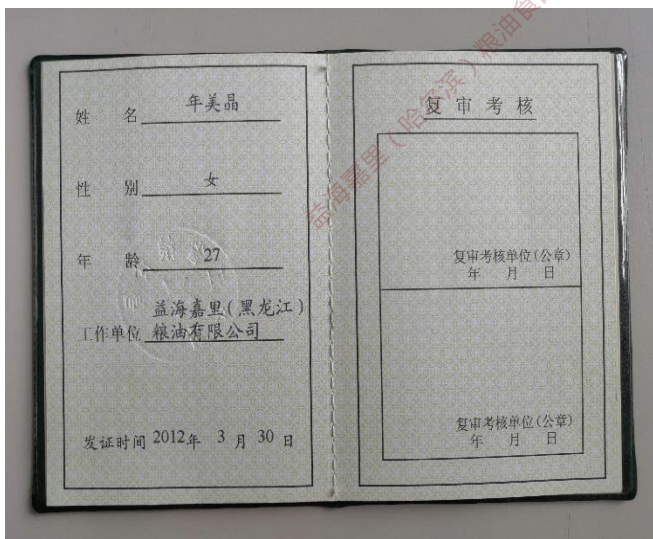 姓 名 年美晶
性 别 女
年 龄 27
益海嘉里(黑龙江)
工作单位 粮油有限公司
发证时间 2012年 3 月 30 日
复 审 考 核
复审考核单位(公章)
年 月 日
复审考核单位(公章)
年 月 日
益海嘉里(哈尔滨)粮油食